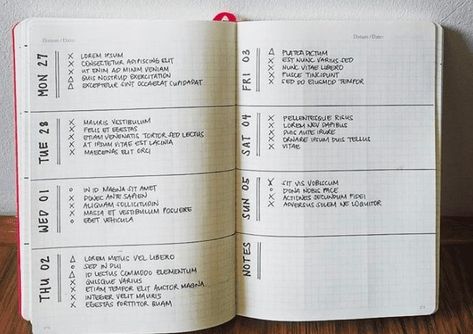 Datum / Date:
MON 27
X LOREM IPSUM
X CONSECTETUR ADIPISCING ELIT
X UT ENIM AD MINIM VENIAM
△ QUIS NOSTRUD EXERCITATION
X EXCEPTEUR SINT OCCAECAT CUPIDATAT
TUE 28
X MAURIS VESTIBULUM
X FELIS ET EGESTAS
X ETIAM VENENATIS TORTOR SED LECTUS
X AT IPSUM VITAE EST LACINIA
X MAECENAS ELIT ORCI
WED 01
o IN ID MAGNA SIT AMET
X DONEC ANTE SAPIEN
X ALIQUAM SOLLICITUDIN
X MASSA ET VESTIBULUM POSUERE
o EGET VEHICULA
THU 02
△ LOREM METUS VEL LIBERO
o SED IN DUI
△ ID LECTUS COMMODO ELEMENTUM
X QUISQUE VARIUS
X ETIAM TEMPOR ELIT AUCTOR MAGNA
X INTEGER VELIT MAURIS
X EGESTAS PORTTITOR QUAM
Datum / Date:
FRI 03
△ PLATEA DICTUM
X EST NUNC VARIUS SED
X NUNC VITAE LIBERO
X FUSCE TINCIDUNT
X SED DO EIUSMOD TEMPOR
SAT 04
X PELLENTESQUE RISUS
X LOREM NEV DAPIBUS
X DUIS AUTE IRURE
X ORNARE IPSUM DUIS TELLUS
X VITAE
SUN 05
X SIT VIS VOBISCUM
o DONA NOBIS PACE
X ACTIONES SECUNDUM FIDEI
X ADVERSUS SOLEM NE LOQUITOR
NOTES